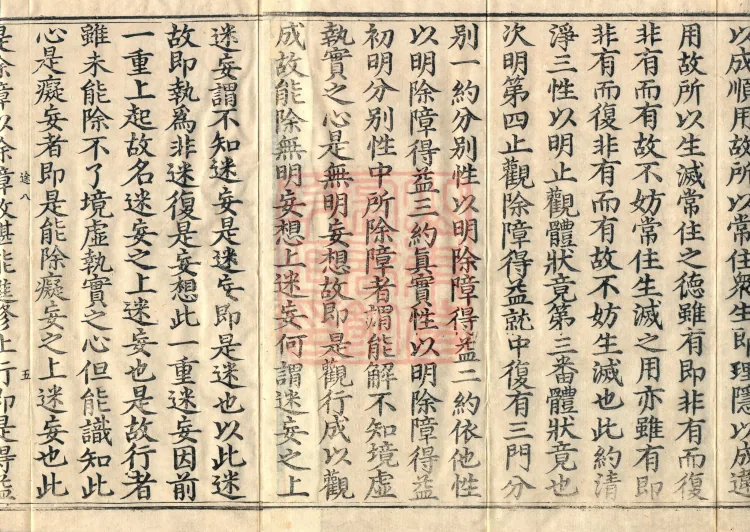 以成順用故所以常住衆生即理隱以成違
用故所以生滅常住之德雖有即非有而復
非有而有故不妨常住生滅之用亦雖有即
非有而復非有而有故不妨生滅也此約清
淨三性以明止觀體狀竟第三番體狀竟也
次明第四止觀除障得益就中復有三門分
別一約分別性以明除障得益二約依他性
以明除障得益三約真實性以明除障得益
初明分別性中所除障者謂能解不知境虛
執實之心是無明妄想故即是觀行成以觀
成故能除無明妄想上迷妄何謂迷妄之上
迷妄謂不知迷妄是迷妄即是迷也以此迷
故即執為非迷復是妄想此一重迷妄因前
一重上起故名迷妄之上迷妄也是故行者
雖未能除不了境虛執實之心但能識知此
心是癡妄者即是能除癡妄之上迷妄也此
是除障以除障故堪能進修止行即是得益
途八
五